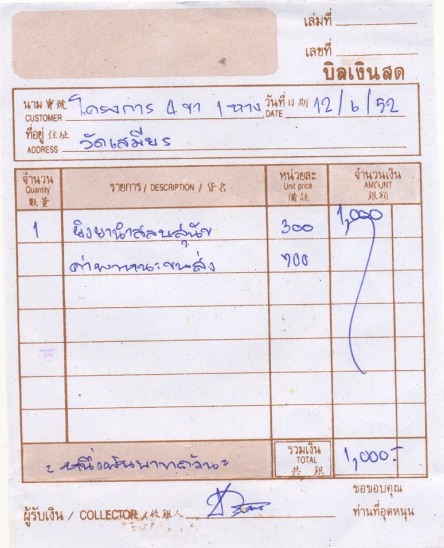 เล่มที่
เลขที่
บิลเงินสด
นาม 寶號 CUSTOMER โครงการ 4 ขา 1 หาง วันที่ 日期 DATE 12/6/52
ที่อยู่ 住址 ADDRESS วัดเสมียร
จำนวน Quantity 數量 รายการ / DESCRIPTION / 貨名 หน่วยละ Unit price 備註 จำนวนเงิน AMOUNT 銀額
1 ยิงยานำสลบสุนัข 300 1,000
ค่าพาหนะขนส่ง 700
= หนึ่งพันบาทถ้วน = รวมเงิน TOTAL 共銀 1,000.-
ผู้รับเงิน / COLLECTOR / 收銀人 ขอขอบคุณ
ท่านที่อุดหนุน